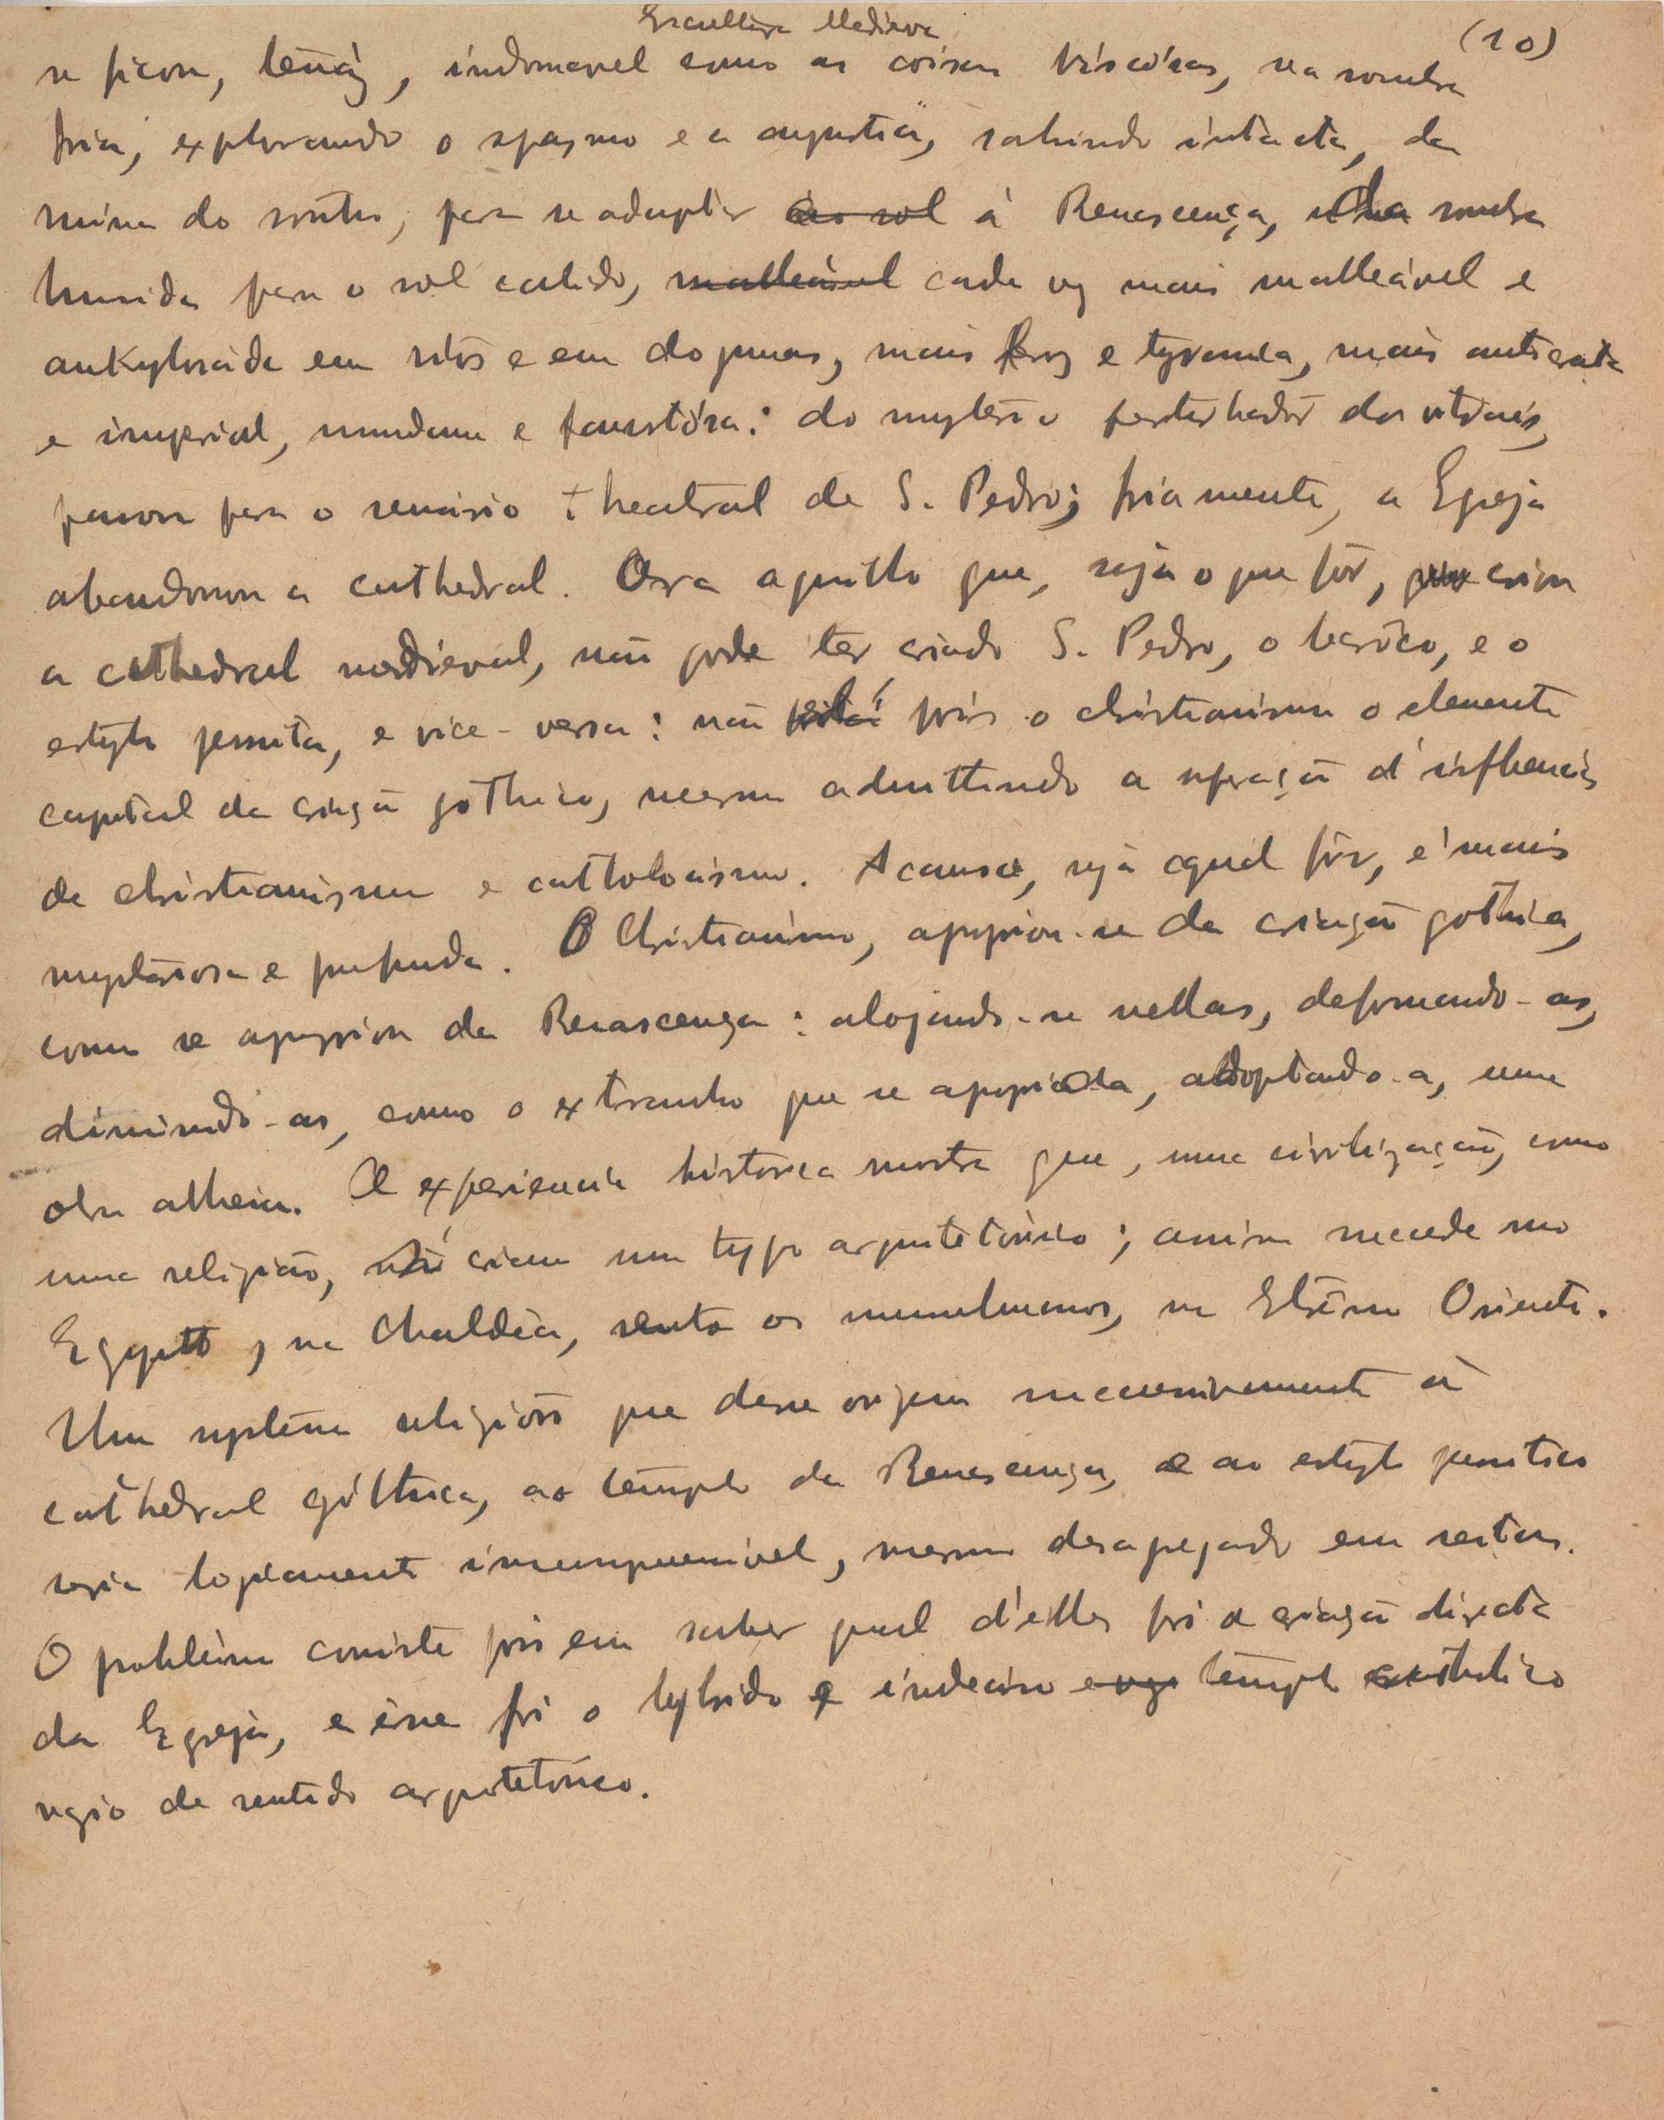 Escultura Medieva
(10)
se ficou, tenáz, indomavel como as coisas viscósas, na sombra
fria, explorando o spasmo e a angustia, sahindo intacta, da
ruina do sonho, para se adaptar ao sol á Renascença, da sombra
humida para o sol calido, malleável cada vez mais malleável e
ankylosada em ritos e em dogmas, mais feroz e tyranna, mais autocrata
e imperial, mundana e faustósa: do mysterio perturbador dos vitraes,
passou para o scenario theatral de S. Pedro; friamente, a Egreja
abandonou a cathedral. Ora aquillo que, seja o que fôr, criou
a cathedral medieval, não pode ter criado S. Pedro, o baróco, e o
estylo jesuita, e vice-versa: não pois o christianismo o elemento
capital da criação gothica, mesmo admittindo a separação d'influencias
de christianismo e catholicismo. A causa, seja qual fôr, é mais
mysteriosa e profunda. O Christianismo, apropriou-se da criação gothica,
como se apropriou da Renascença: alojando-se nellas, deformando-as,
diminuindo-as, como o extranho que se apropria da, adoptando-a, uma
obra alheia. A experiencia historica mostra que, uma civilização, como
uma religião, criam um typo arquitetónico; assim succede no
Egypto, na Chaldêa, entre os musulmanos, no Extremo Oriente.
Um systema religioso que désse origem successivamente á
cathedral góthica, ao templo da Renascença, e ao estylo jesuitico
seria logicamente incompreensivel, mesmo desagregado em seitas.
O problema consiste pois em saber qual d'elles foi a criação directa
da Egreja, e êsse foi o hybrido e indeciso templo catholico
vazio de sentido arquitetónico.